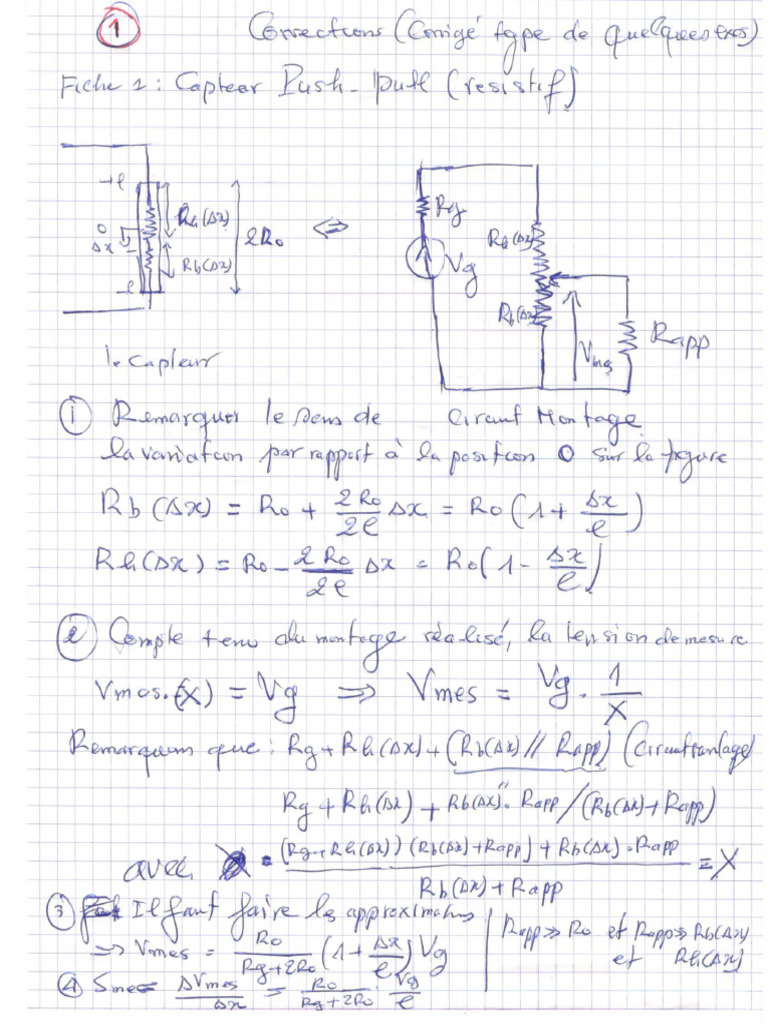 1
Corrections (Corrigé type de quelques exos)
Fiche 1 : Capteur Push-pull (resistif)
+l
0
Δx
-l
Rh(Δx)
Rb(Δx)
2R0
⇔
Rg
Vg
Rh(Δx)
Rb(Δx)
Vmes
Rapp
le capteur
Circuit Montage
① Remarquer le sens de
la variation par rapport à la position 0 sur la figure
Rb(Δx) = R0 + 2R0/2l Δx = R0(1 + Δx/l)
Rh(Δx) = R0 - 2R0/2l Δx = R0(1 - Δx/l)
② Compte tenu du montage réalisé, la tension de mesure
Vmes.(X) = Vg ⇒ Vmes = Vg . 1/X
Remarquons que : Rg + Rh(Δx) + (Rb(Δx) // Rapp) (Circuit montage)
Rg + Rh(Δx) + Rb(Δx) . Rapp / (Rb(Δx) + Rapp)
avec (Rg + Rh(Δx)) (Rb(Δx) + Rapp) + Rb(Δx) . Rapp / Rb(Δx) + Rapp = X
③ Il faut faire les approximations
Rapp >> R0 et Rapp >> Rb(Δx)
et Rh(Δx)
⇒ Vmes = R0/Rg+2R0 (1 + Δx/l) Vg
④ Smes = ΔVmes/Δx = R0/Rg+2R0 . Vg/l